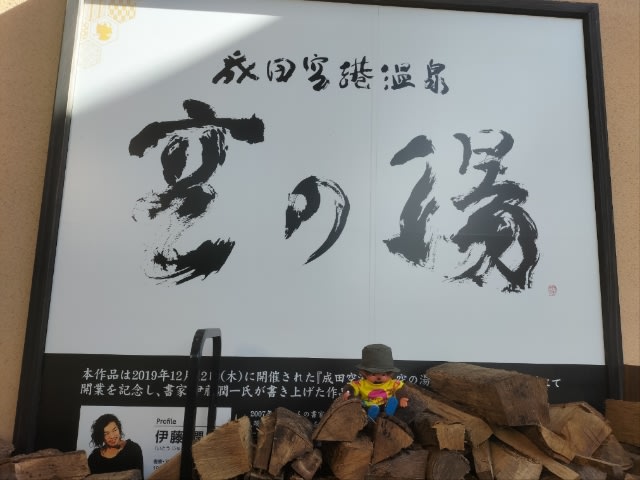 成田空港温泉
空の湯
本作品は2019年12月12日(木)に開催された『成田空 空の湯 にて
開業を記念し、書家 伊藤潤一氏が書き上げた作品
Profile
伊藤潤
2007年 の書家